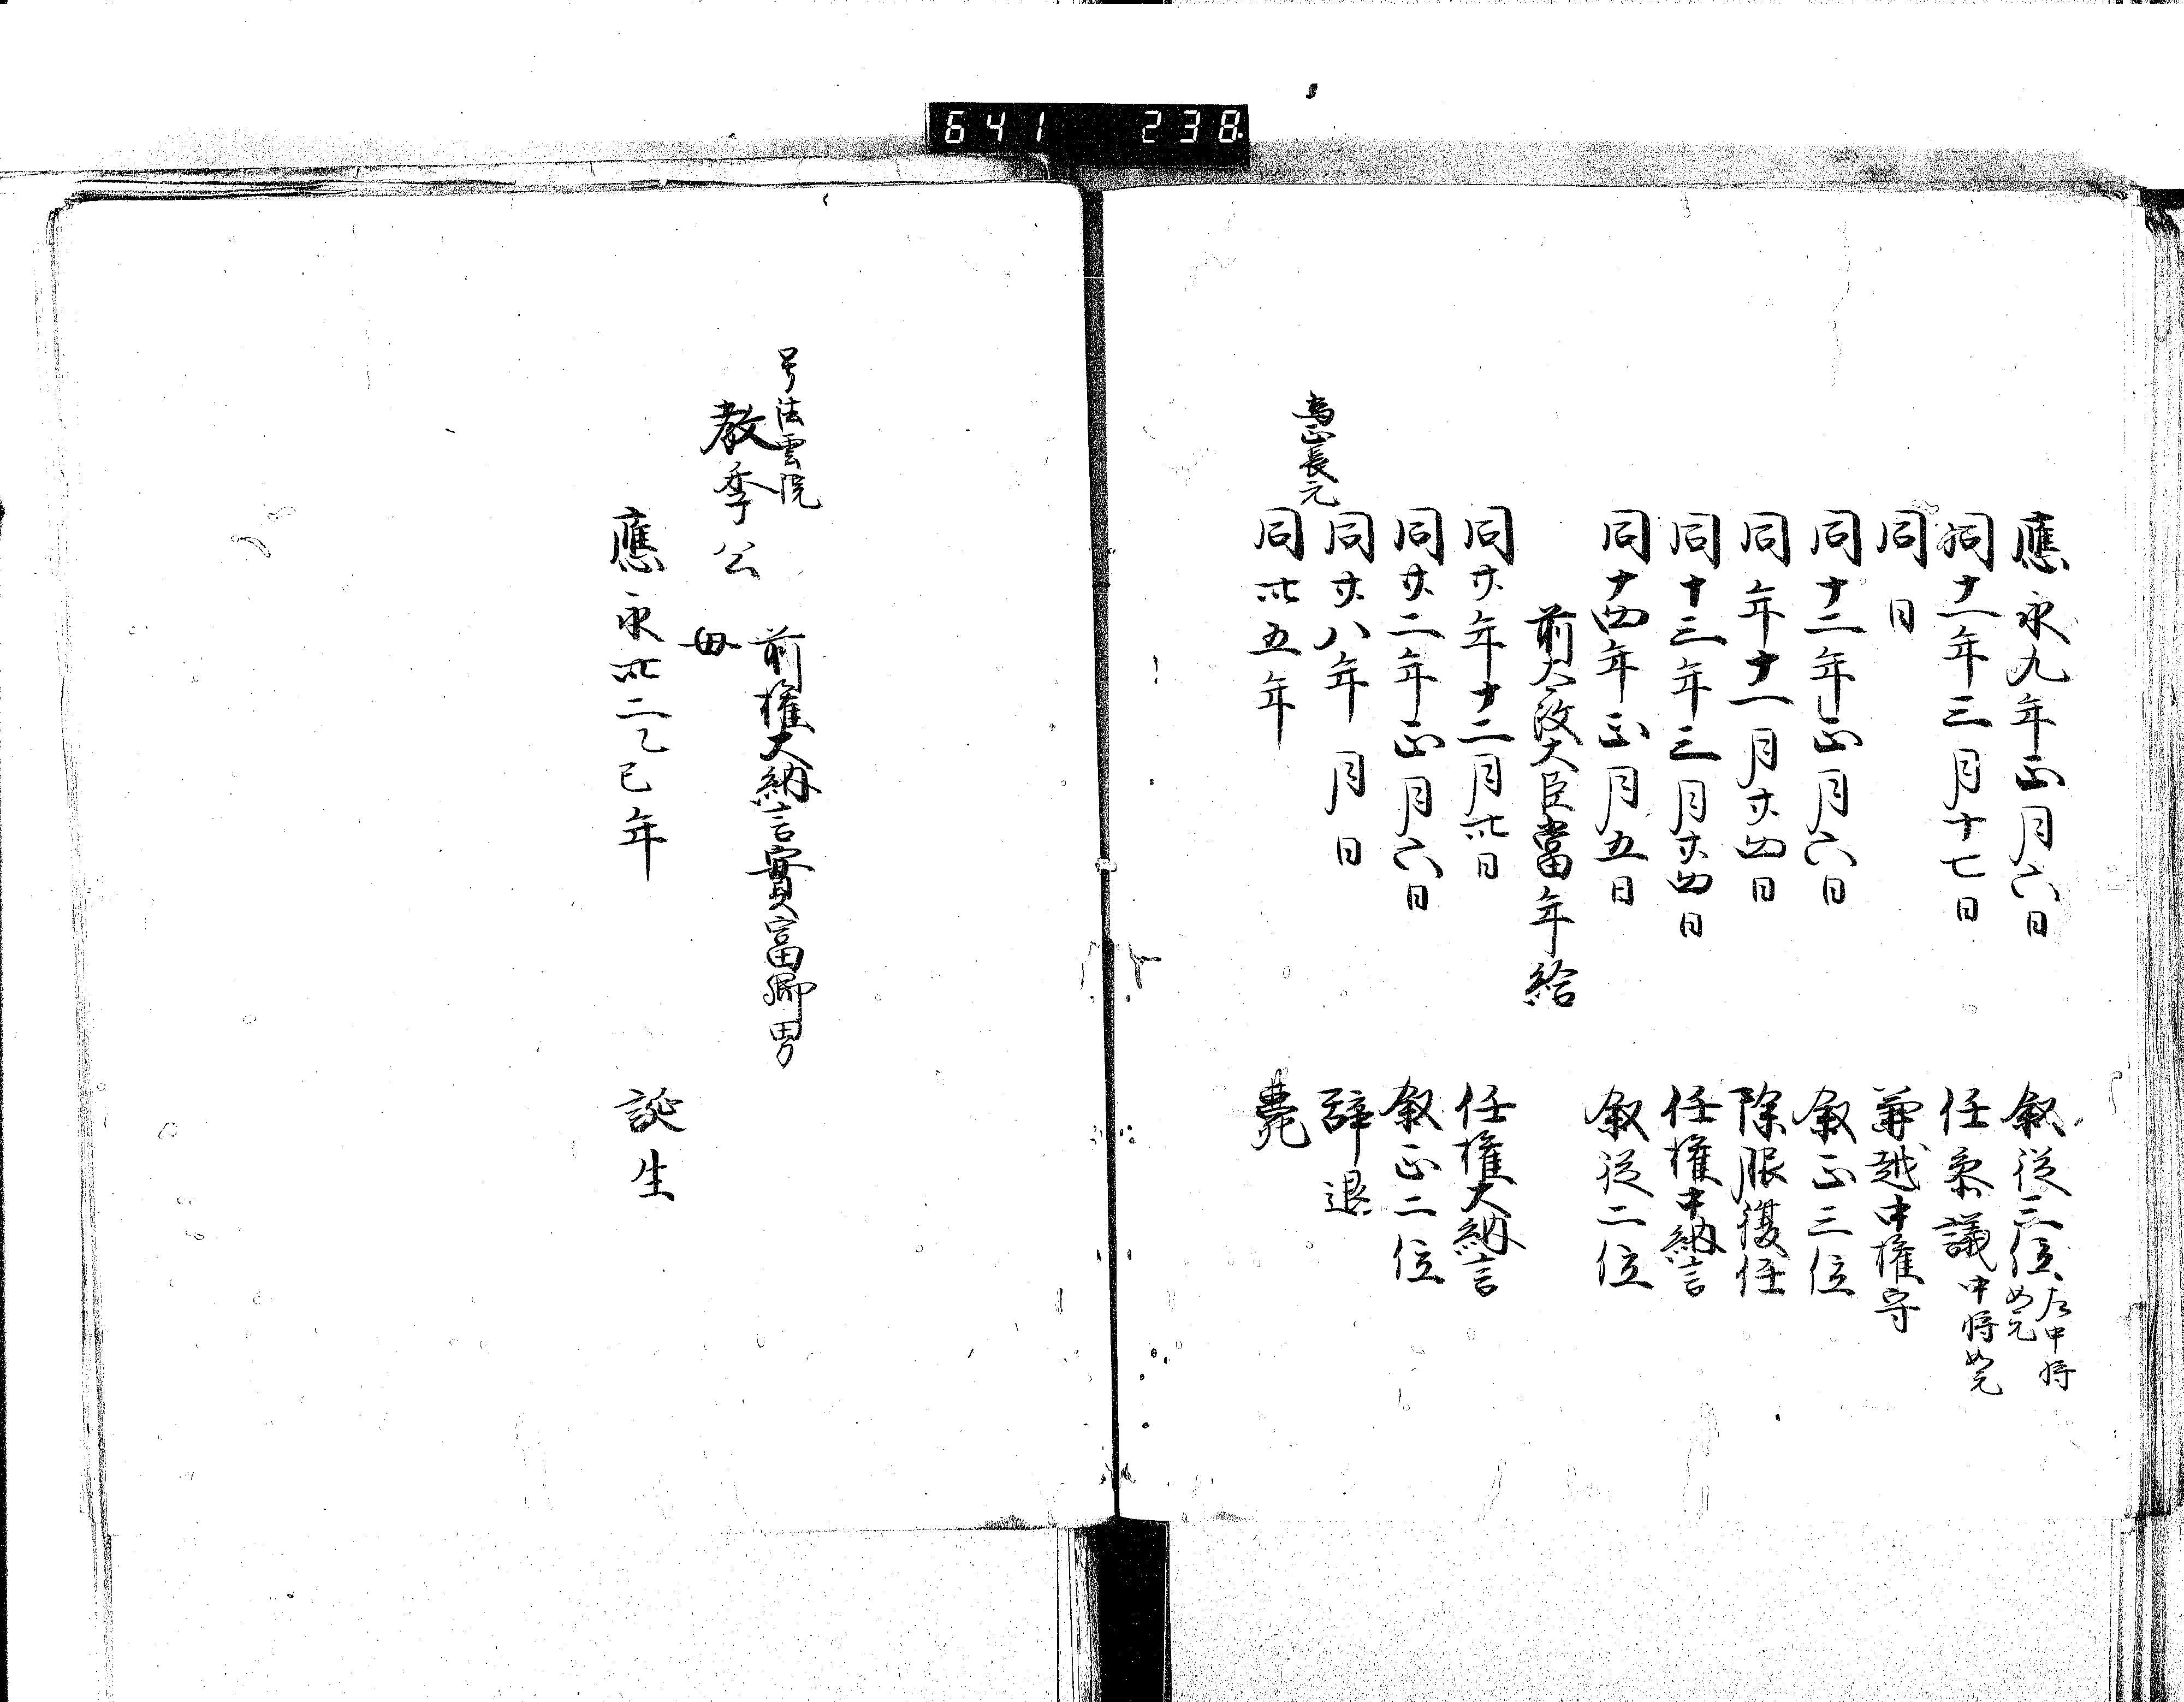 641 238
應永九年正月六日 叙従三位 左中将如元
同十一年三月十七日 任参議 中将如元
同日 兼越中権守
同十二年正月六日 叙正三位
同年十一月廿四日 除服復任
同十三年三月廿四日 任権中納言
同十四年正月五日 叙従二位
前太政大臣當年給
同廿年十二月卅日 任権大納言
同廿二年正月六日 叙正二位
同廿八年 月 日 辞退
為正長元
同卅五年 薨
号法雲院
前権大納言實富卿男
教季公
母
應永卅二乙巳年 誕生